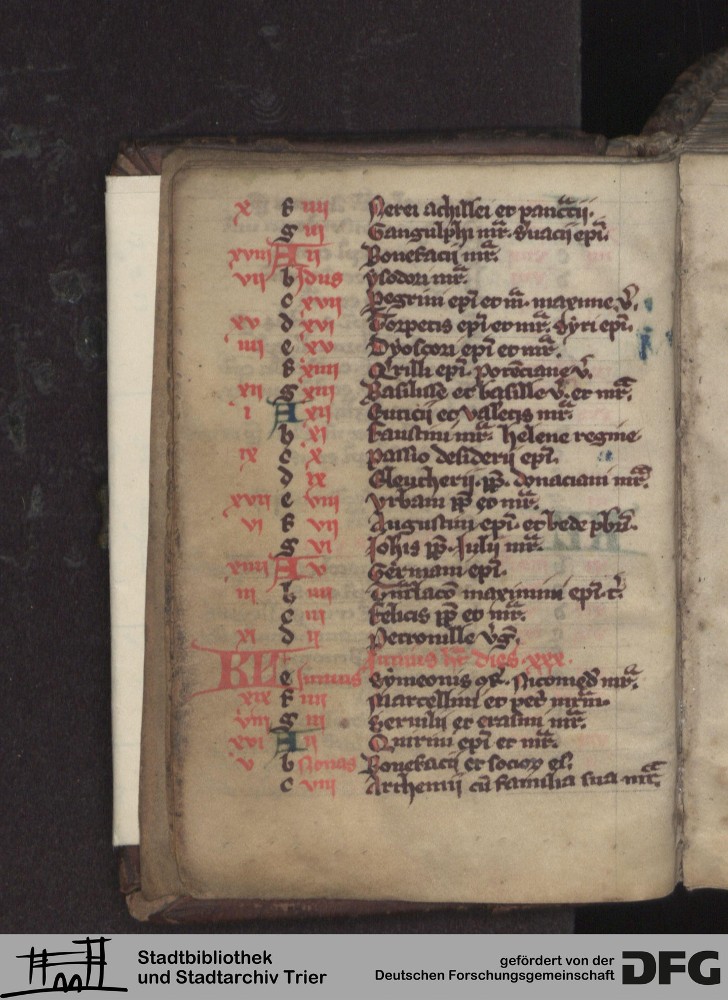 x f iiii Nerei achillei et pancrcii.
g iii Gangulphi mr̄. Suacii epī.
xviii A ii Bonefacii mr̄.
vii b Idus ysodori mr̄.
c xvii Pegrini epī et m̄. maxime v̄.
xv d xvi Torpetis epī et mr̄. Syri epī.
iiii e xv Dyoscori epī et mr̄.
f xiiii Cirilli epī. Potēciane v̄.
xii g xiii Basilisse et basille v̄. et mr̄.
i A xii Euticii et valetis mr̄.
b xi Faustini mr̄. helene regine
ix c x Passio desiderii epī.
d ix Eleutherii. pp̄. donaciani mr̄.
xvii e viii Vrbani pp̄ et mr̄.
vi f vii Augustini epī. et bede pbrī.
g vi Iohis pp̄. Iulii mr̄.
xiiii A v Germani epī.
iii b iiii maximini epī. t͛.
c iii Felicis pp̄ et mr̄.
xi d ii Petronille v̄g.
Iunius hr̄ dies. xxx.
KL e Iunius Symeonis 9f̄. Nicomed mr̄.
xix f iiii Marcellini et pet͛ mr̄m.
viii g iii Seruilii et erasmi mr̄.
xvi A ii Quirini epī et mr̄.
v b Nonas Bonefacii et socioꝝ eī.
c viii Arthemii cū familia sua mr̄.
Stadtbibliothek
und Stadtarchiv Trier
gefördert von der
Deutschen Forschungsgemeinschaft
DFG